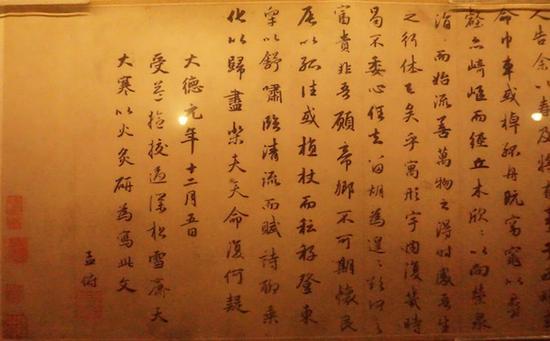 人告余以春及將有事于西疇
命巾車或棹孤舟既窈窕以尋
壑亦崎嶇而經丘木欣〻以向榮泉
涓〻而始流善萬物之得時感吾生
之行休已矣乎寓形宇內復幾時
曷不委心任去留胡為遑〻欲何之
富貴非吾願帝鄉不可期懷良
辰以孤往或植杖而耘耔登東
皋以舒嘯臨清流而賦詩聊乘
化以歸盡樂夫天命復何疑
大德元年十二月五日
受益過松雪齋大
大寒以火炙研為寫此文
孟頫